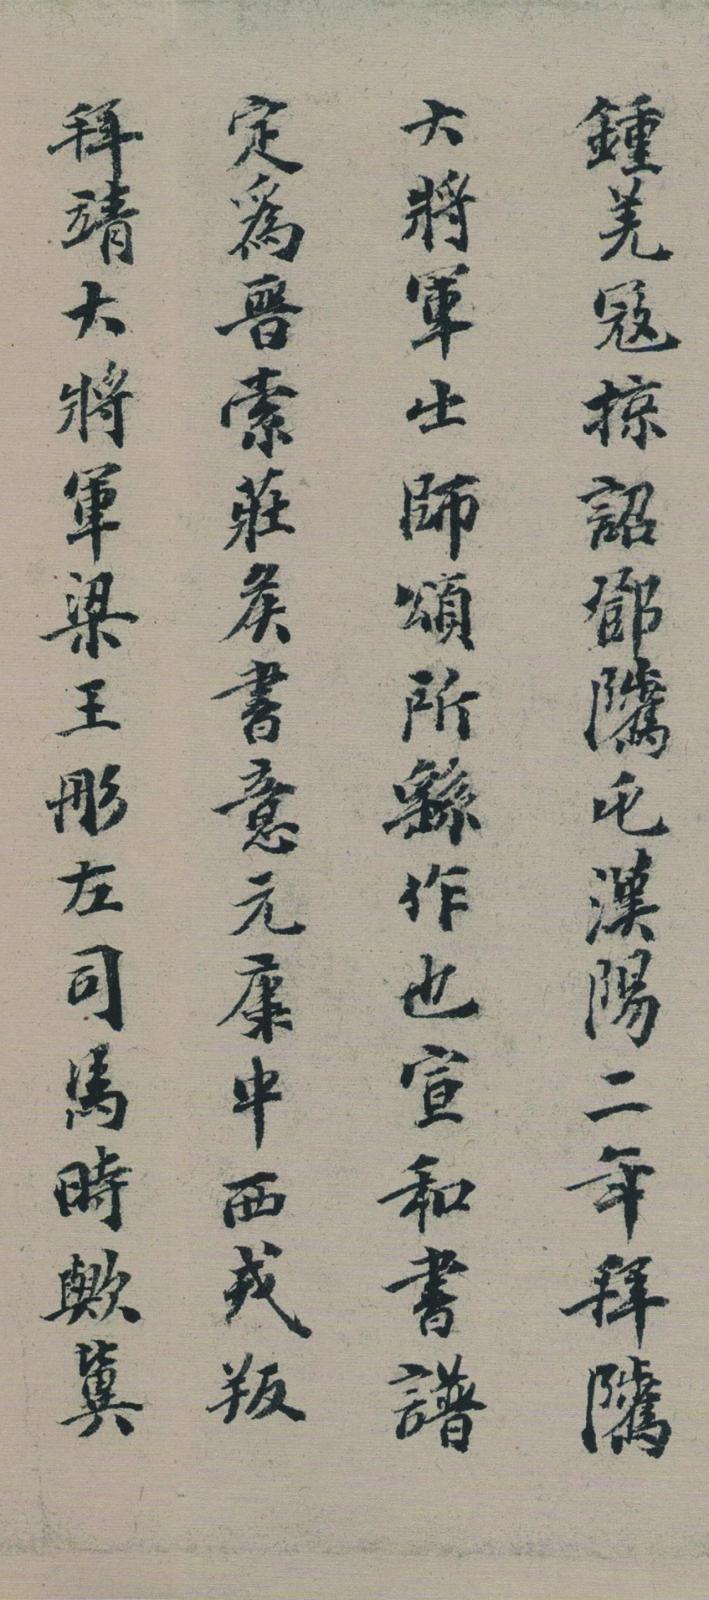 鍾羌寇掠詔鄧隲屯漢陽二年拜隲
大將軍出師頌所繇作也宣和書譜
定爲晉索莊矦書意元康中西戎叛
拜靖大將軍梁王彤左司馬時歟冀